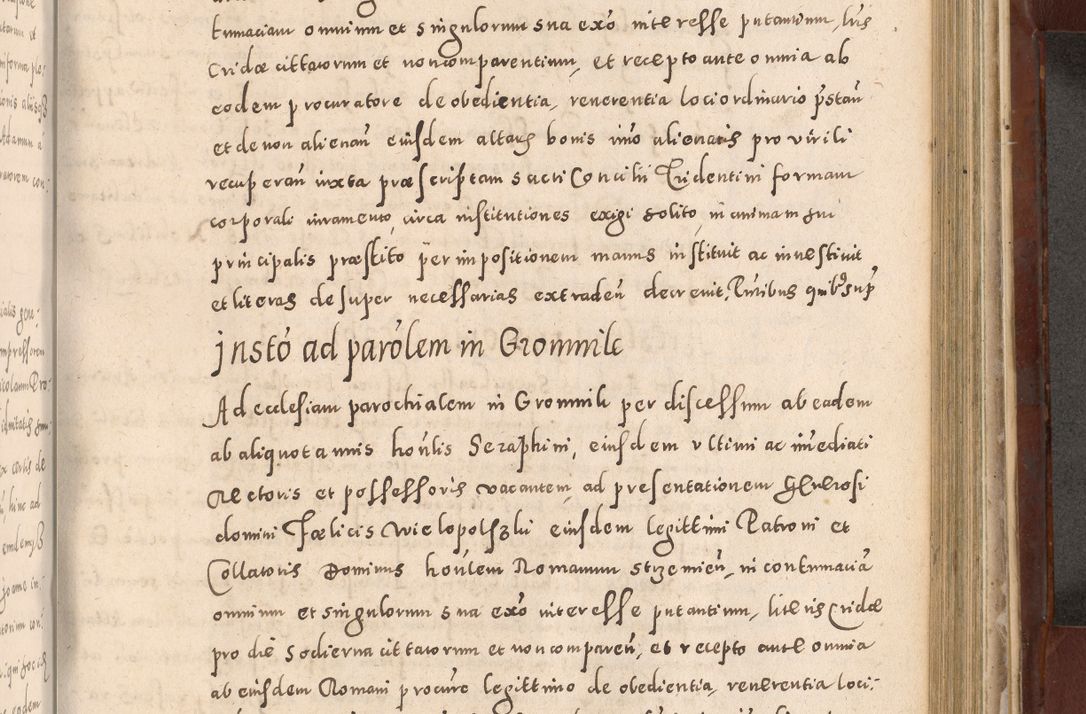 tumaciam omnium et singulorum sua exō interesse putantium, lris
Cridæ cittatorum et non comparentium, et recepto ante omnia ab
eodem procuratore de obedientia, reverentia loci ordinario p̄stan
et de non alienan̄ eiusdem altaris bonis imo alienatis pro virili
recuperan̄ iuxta præscriptam sacri Concilii Tridentini formam
corporali iuramento, circa institutiones exigi solito, in animam sui
principalis præstito per impositionem manus instituit ac investivit
et literas desuper necessarias extraden̄ decrevit, Pn̄tibus quib⁹ sup̄
Instō ad parōlem in Gromnik
Ad ecclesiam parochialem in Gromnik per discessum ab eadem
ab aliquot annis hon̄lis Seraphini, eiusdem ultimi ac im̄ediati
Rectoris et possessoris vacantem, ad presentationem Generosi
domini Fœlicis Wielopolszki eiusdem legittimi Patroni et
Collatoris Dominus hon̄lem Romanum Strzemien̄, in contumaciā
omnium et singulorum sua exō interesse putantium, literis Cridæ
pro die hodierna cittatorum et non comparen̄, et recepto ante omnia
ab eiusdem Romani procur̄e legittimo de obedientia, reverentia loci-